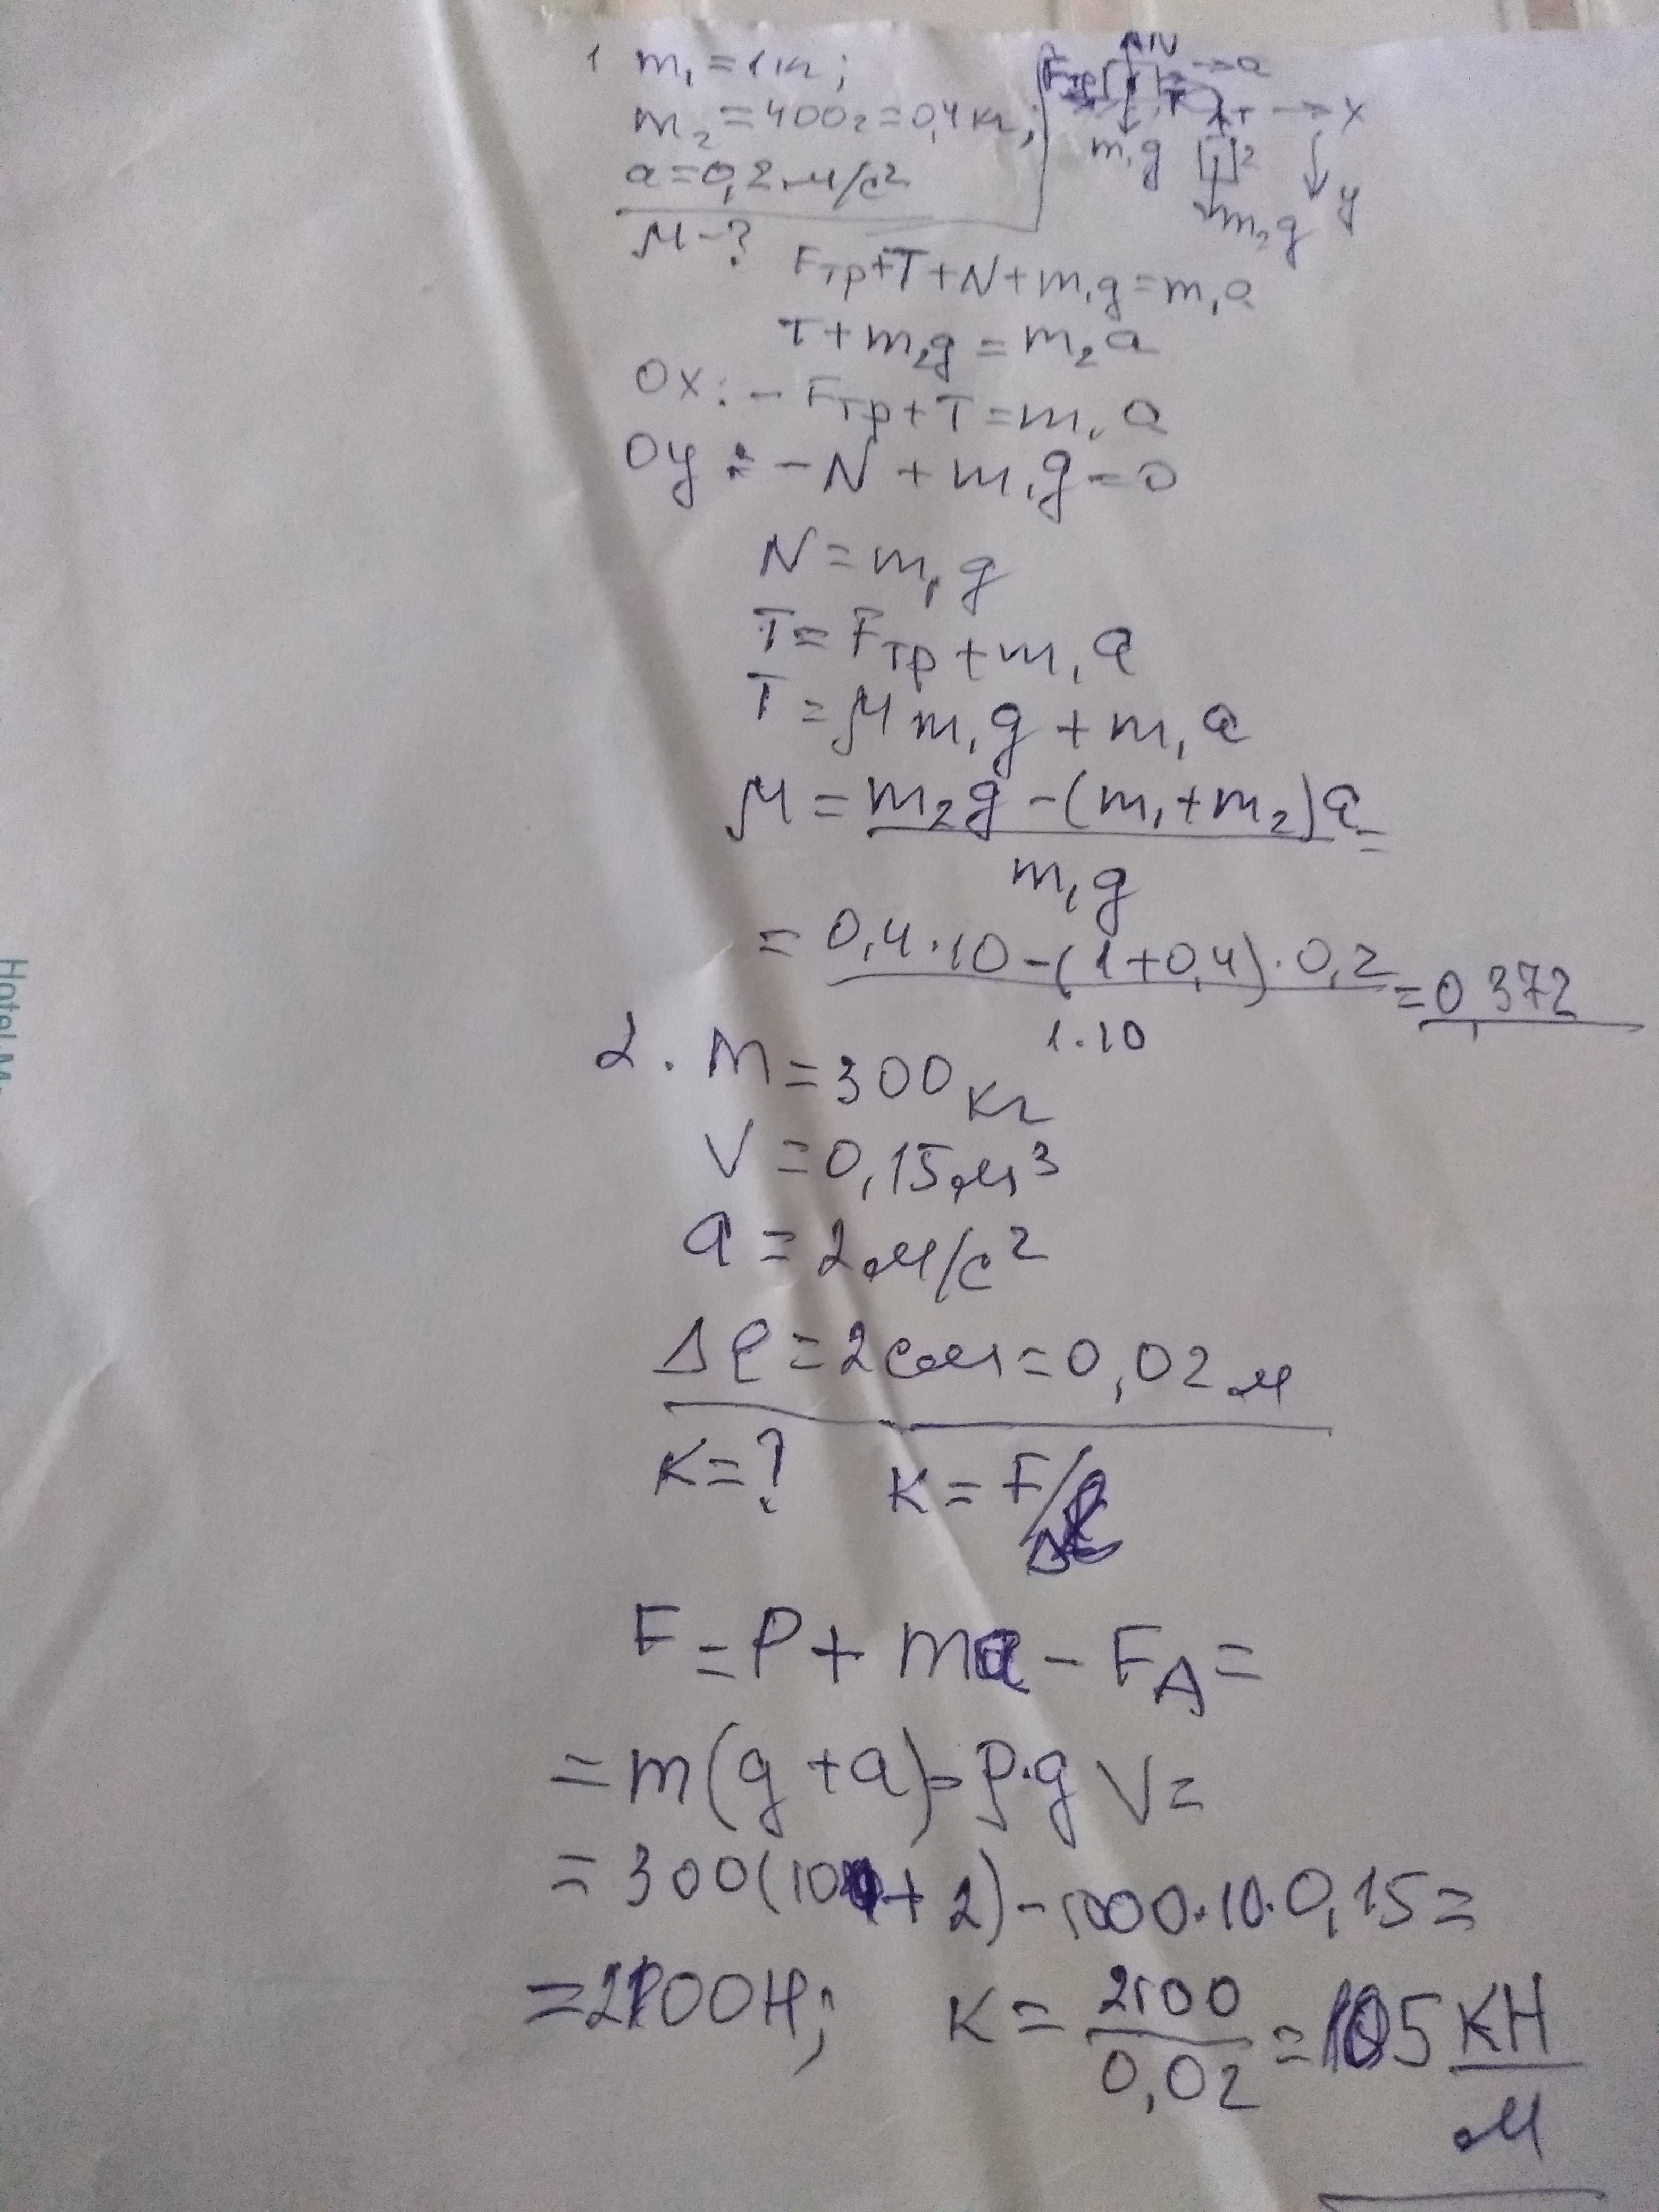 1 m₁ = 1кг;
m₂ = 400г = 0,4 кг;
a = 0,2 м/с²
μ - ?
Fтр N → a
T T → x
m₁g 2
m₂g y
Fтр + T + N + m₁g = m₁a
T + m₂g = m₂a
Ox: - Fтр + T = m₁a
Oy: - N + m₁g = 0
N = m₁g
T = Fтр + m₁a
T = μm₁g + m₁a
μ = m₂g - (m₁ + m₂)a =
m₁g
= 0,4·10 - (1+0,4)·0,2 = 0,372
1·10
2. m = 300 кг
V = 0,15 м³
a = 2 м/с²
Δℓ = 2 см = 0,02 м
K = ? K = F/Δℓ
F = P + ma - FA =
= m(g + a) - ρ·g V =
= 300(10 + 2) - 1000·10·0,15 =
= 2100Н; K = 2100 = 105 КН
0,02 м
Hotel M